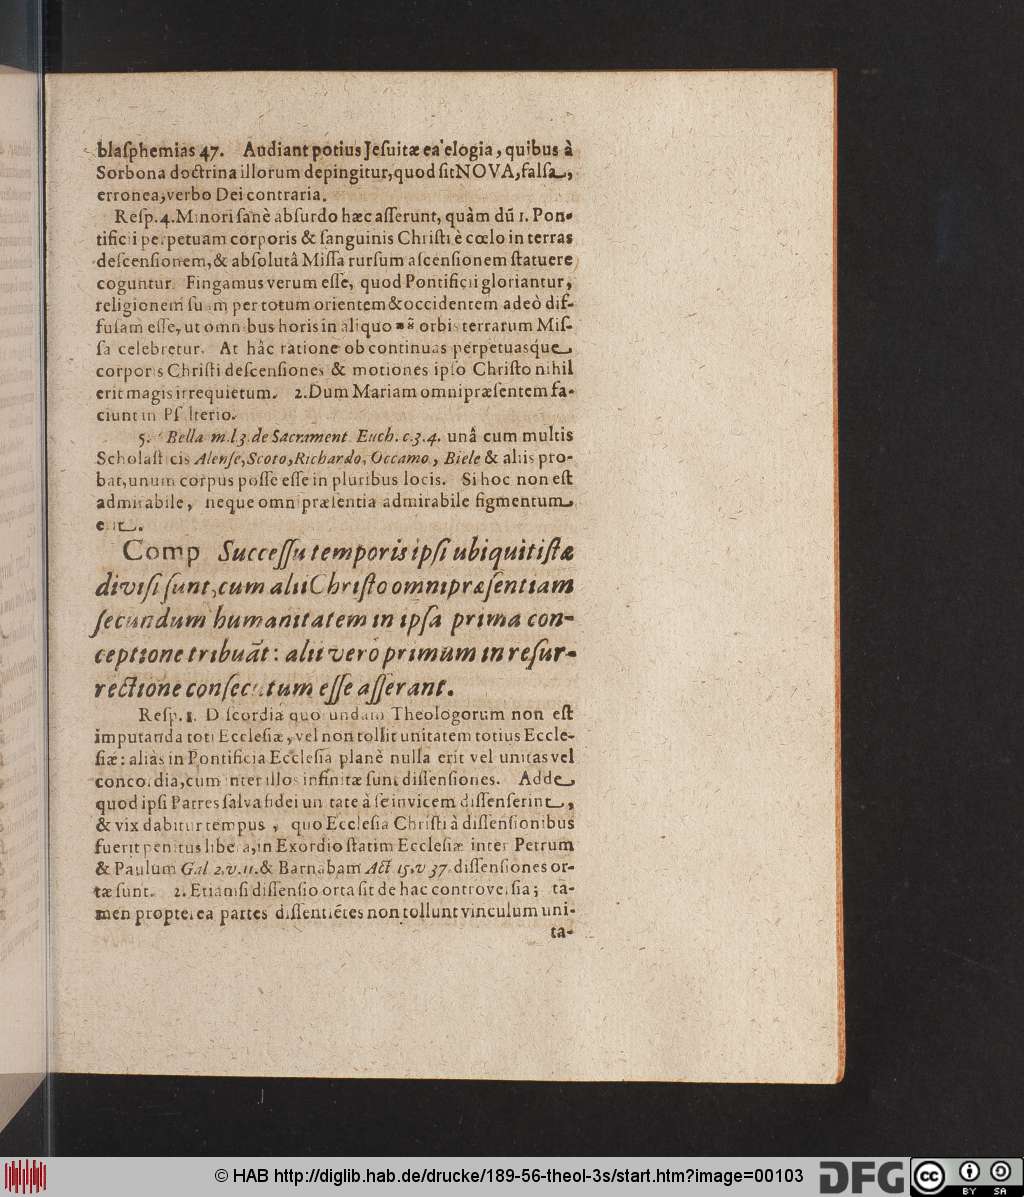 blaſphemias 47. Audiant potius Jeſuitæ ea elogia, quibus à
Sorbona doctrina illorum depingitur, quod ſit NOVA, falſa,
erronea, verbo Dei contraria.
Reſp. 4. Minori ſanè abſurdo hæc aſſerunt, quàm dũ 1. Pon-
tificii perpetuam corporis & ſanguinis Chriſti è cœlo in terras
deſcenſionem, & abſolutâ Miſſa rurſum aſcenſionem ſtatuere
coguntur. Fingamus verum eſſe, quod Pontificii gloriantur,
religionem ſuam per totum orientem & occidentem adeò dif-
fuſam eſſe, ut omnibus horis in aliquo orbis terrarum Miſ-
ſa celebretur. At hâc ratione ob continuas perpetuasque
corporis Chriſti deſcenſiones & motiones ipſo Chriſto nihil
erit magis irrequietum. 2. Dum Mariam omnipræſentem fa-
ciunt in Pſalterio.
5. Bellarm. l. 3. de Sacrament. Euch. c. 3. 4. unâ cum multis
Scholaſticis Alenſe, Scoto, Richardo, Occamo, Biele & aliis pro-
bat, unum corpus poſſe eſſe in pluribus locis. Si hoc non eſt
admirabile, neque omnipræſentia admirabile figmentum
erit.
Comp Succeſſu temporis ipſi ubiquitiſtæ
diviſi ſunt, cum alii Chriſto omnipræſentiam
ſecundum humanitatem in ipſa prima con-
ceptione tribuãt: alii verò primum in reſur-
rectione conſecutum eſſe aſſerant.
Reſp. 1. Diſcordia quorundam Theologorum non eſt
imputanda toti Eccleſiæ, vel non tollit unitatem totius Eccle-
ſiæ: aliàs in Pontificia Eccleſia planè nulla erit vel unitas vel
concordia, cum inter illos infinitæ ſunt diſſenſiones. Adde,
quod ipſi Patres ſalva fidei unitate à ſe invicem diſſenſerint,
& vix dabitur tempus, quo Eccleſia Chriſti à diſſenſionibus
fuerit penitus libera, in Exordio ſtatim Eccleſiæ inter Petrum
& Paulum Gal 2. v. 11. & Barnabam Act 15. v 37. diſſenſiones or-
tæ ſunt. 2. Etiamſi diſſenſio orta ſit de hac controverſia; ta-
men propterea partes diſſentiẽtes non tollunt vinculum uni-
ta-
© HAB http://diglib.hab.de/drucke/189-56-theol-3s/start.htm?image=00103
DFG
cc BY SA